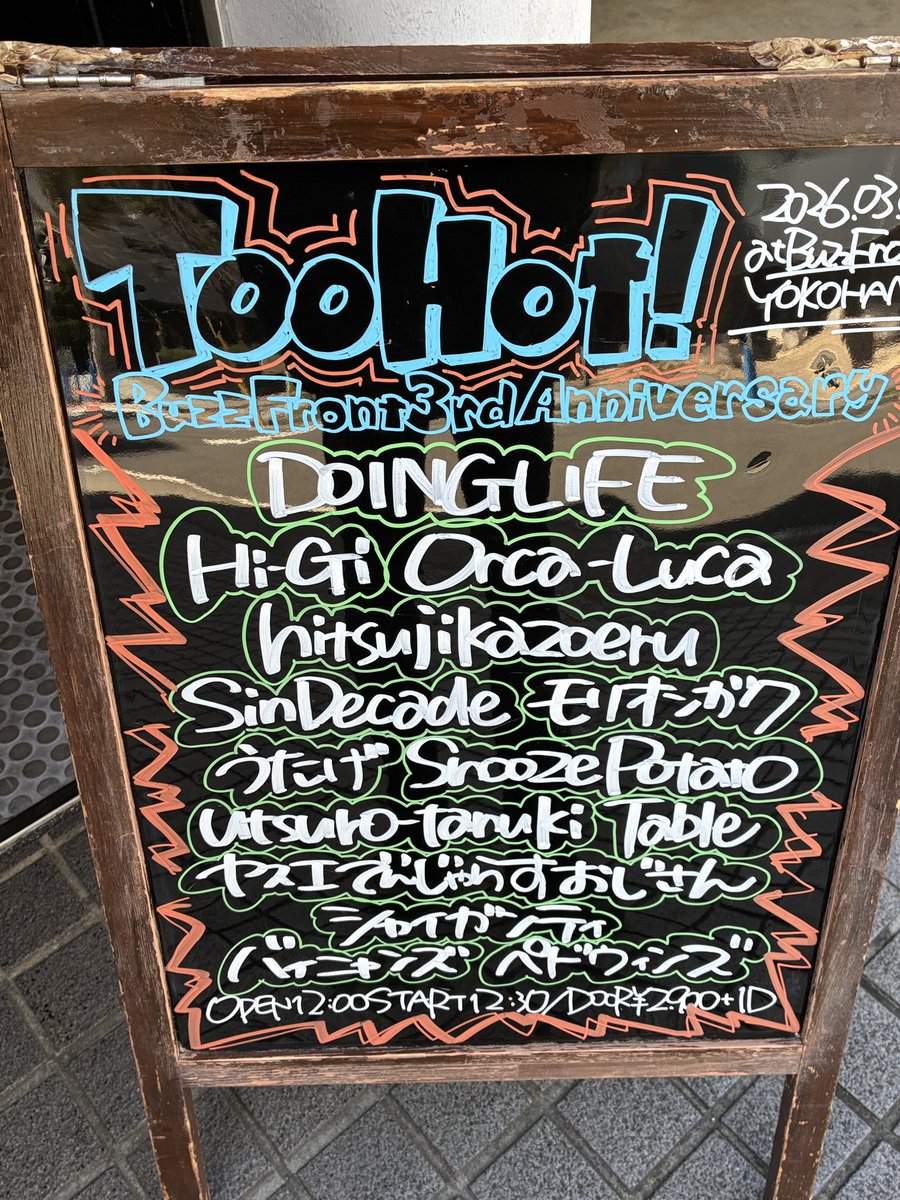 TooHot!
2026.03.
at BuzzFro
YOKOHAM
BuzzFront 3rd Anniversary
DOINGLIFE
Hi-Gi Orca-Luca
hitsujikazoeru
SinDecade モリオンガク
うたげ SnoozePotato
utsuro-tanuki Table
ヤスエでんじゃらすおじさん
シャイガンティ
バイニャンズ ペドウィンズ
OPEN12:00START12:30/DOOR¥2.900+1D